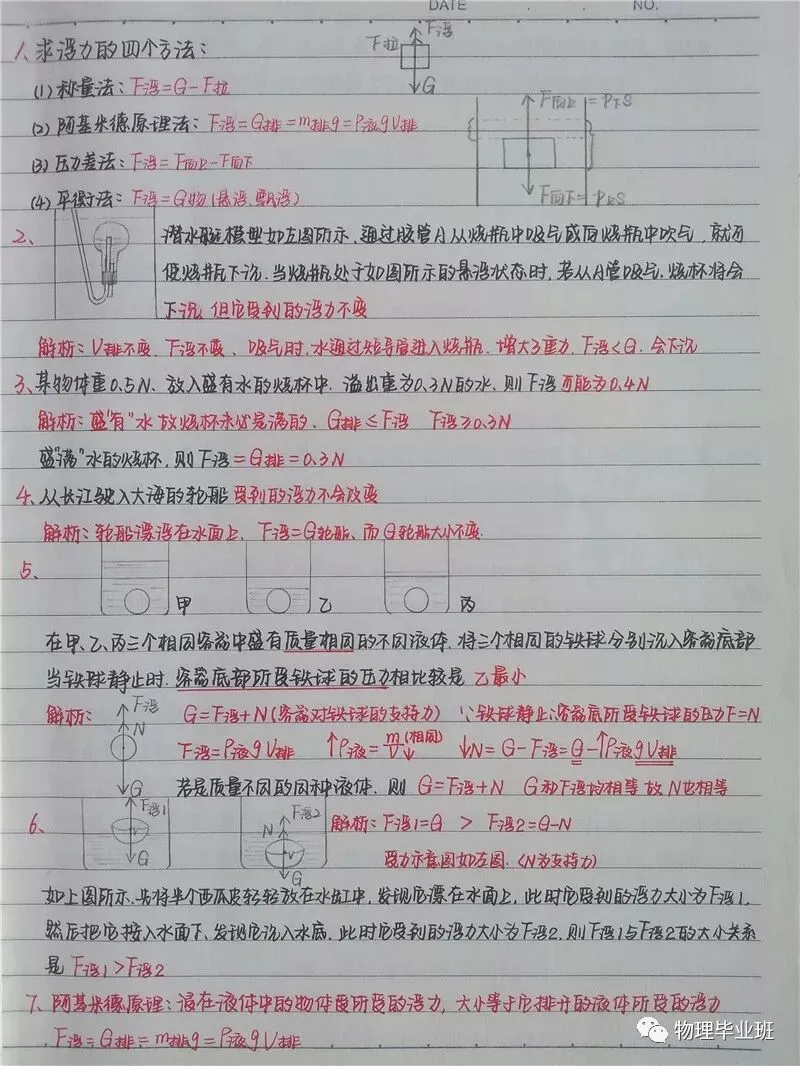 DATE NO.
1、求浮力的四个方法：
F拉 F浮
G
(1) 称量法：F浮=G-F拉
(2) 阿基米德原理法：F浮=G排=m排g=ρ液gV排
F向上=p下S
(3) 压力差法：F浮=F向上-F向下
(4) 平衡法：F浮=G物(悬浮、飘浮)
F向下=p上S
2、潜水艇模型如左图所示，通过胶管A从烧瓶中吸气或向烧瓶中吹气，就可
使烧瓶下沉.当烧瓶处于如图所示的悬浮状态时，若从A管吸气，烧杯将会
下沉，但它受到的浮力不变
解析：V排不变、F浮不变、吸气时，水通过短导管进入烧瓶，增大了重力，F浮<G.会下沉
3、某物体重0.5N、放入盛有水的烧杯中，溢出重为0.3N的水，则F浮可能为0.4N
解析：盛"有"水故烧杯未必是满的、G排≤F浮 F浮≥0.3N
盛"满"水的烧杯，则F浮=G排=0.3N
4、从长江驶入大海的轮船受到的浮力不会改变
解析：轮船漂浮在水面上、F浮=G轮船、而G轮船大小不变.
5、
甲 乙 丙
在甲、乙、丙三个相同容器中盛有质量相同的不同液体，将三个相同的铁球分别沉入容器底部
当铁球静止时，容器底部所受铁球的压力相比较是 乙最小
解析：
F浮
N
G
G=F浮+N(容器对铁球的支持力) ∵铁球静止∴容器底所受铁球的压力F=N
F浮=ρ液gV排 ↑ρ液=m/V↓(相同) ↓N=G-F浮=G-↑ρ液gV排
若是质量不同的同种液体，则G=F浮+N G和F浮均相等 故N也相等
6、
F浮1
V
G
F浮2
N
V
G
解析：F浮1=G > F浮2=G-N
受力示意图如左图.(N为支持力)
如上图所示、先将半个西瓜皮轻轻放在水缸中，发现它漂在水面上，此时它受到的浮力大小为F浮1，
然后把它按入水面下、发现它沉入水底，此时它受到的浮力大小为F浮2，则F浮1与F浮2的大小关系
是 F浮1>F浮2
7、阿基米德原理：浸在液体中的物体受所受的浮力，大小等于它排开的液体所受的浮力
F浮=G排=m排g=ρ液gV排
物理毕业班